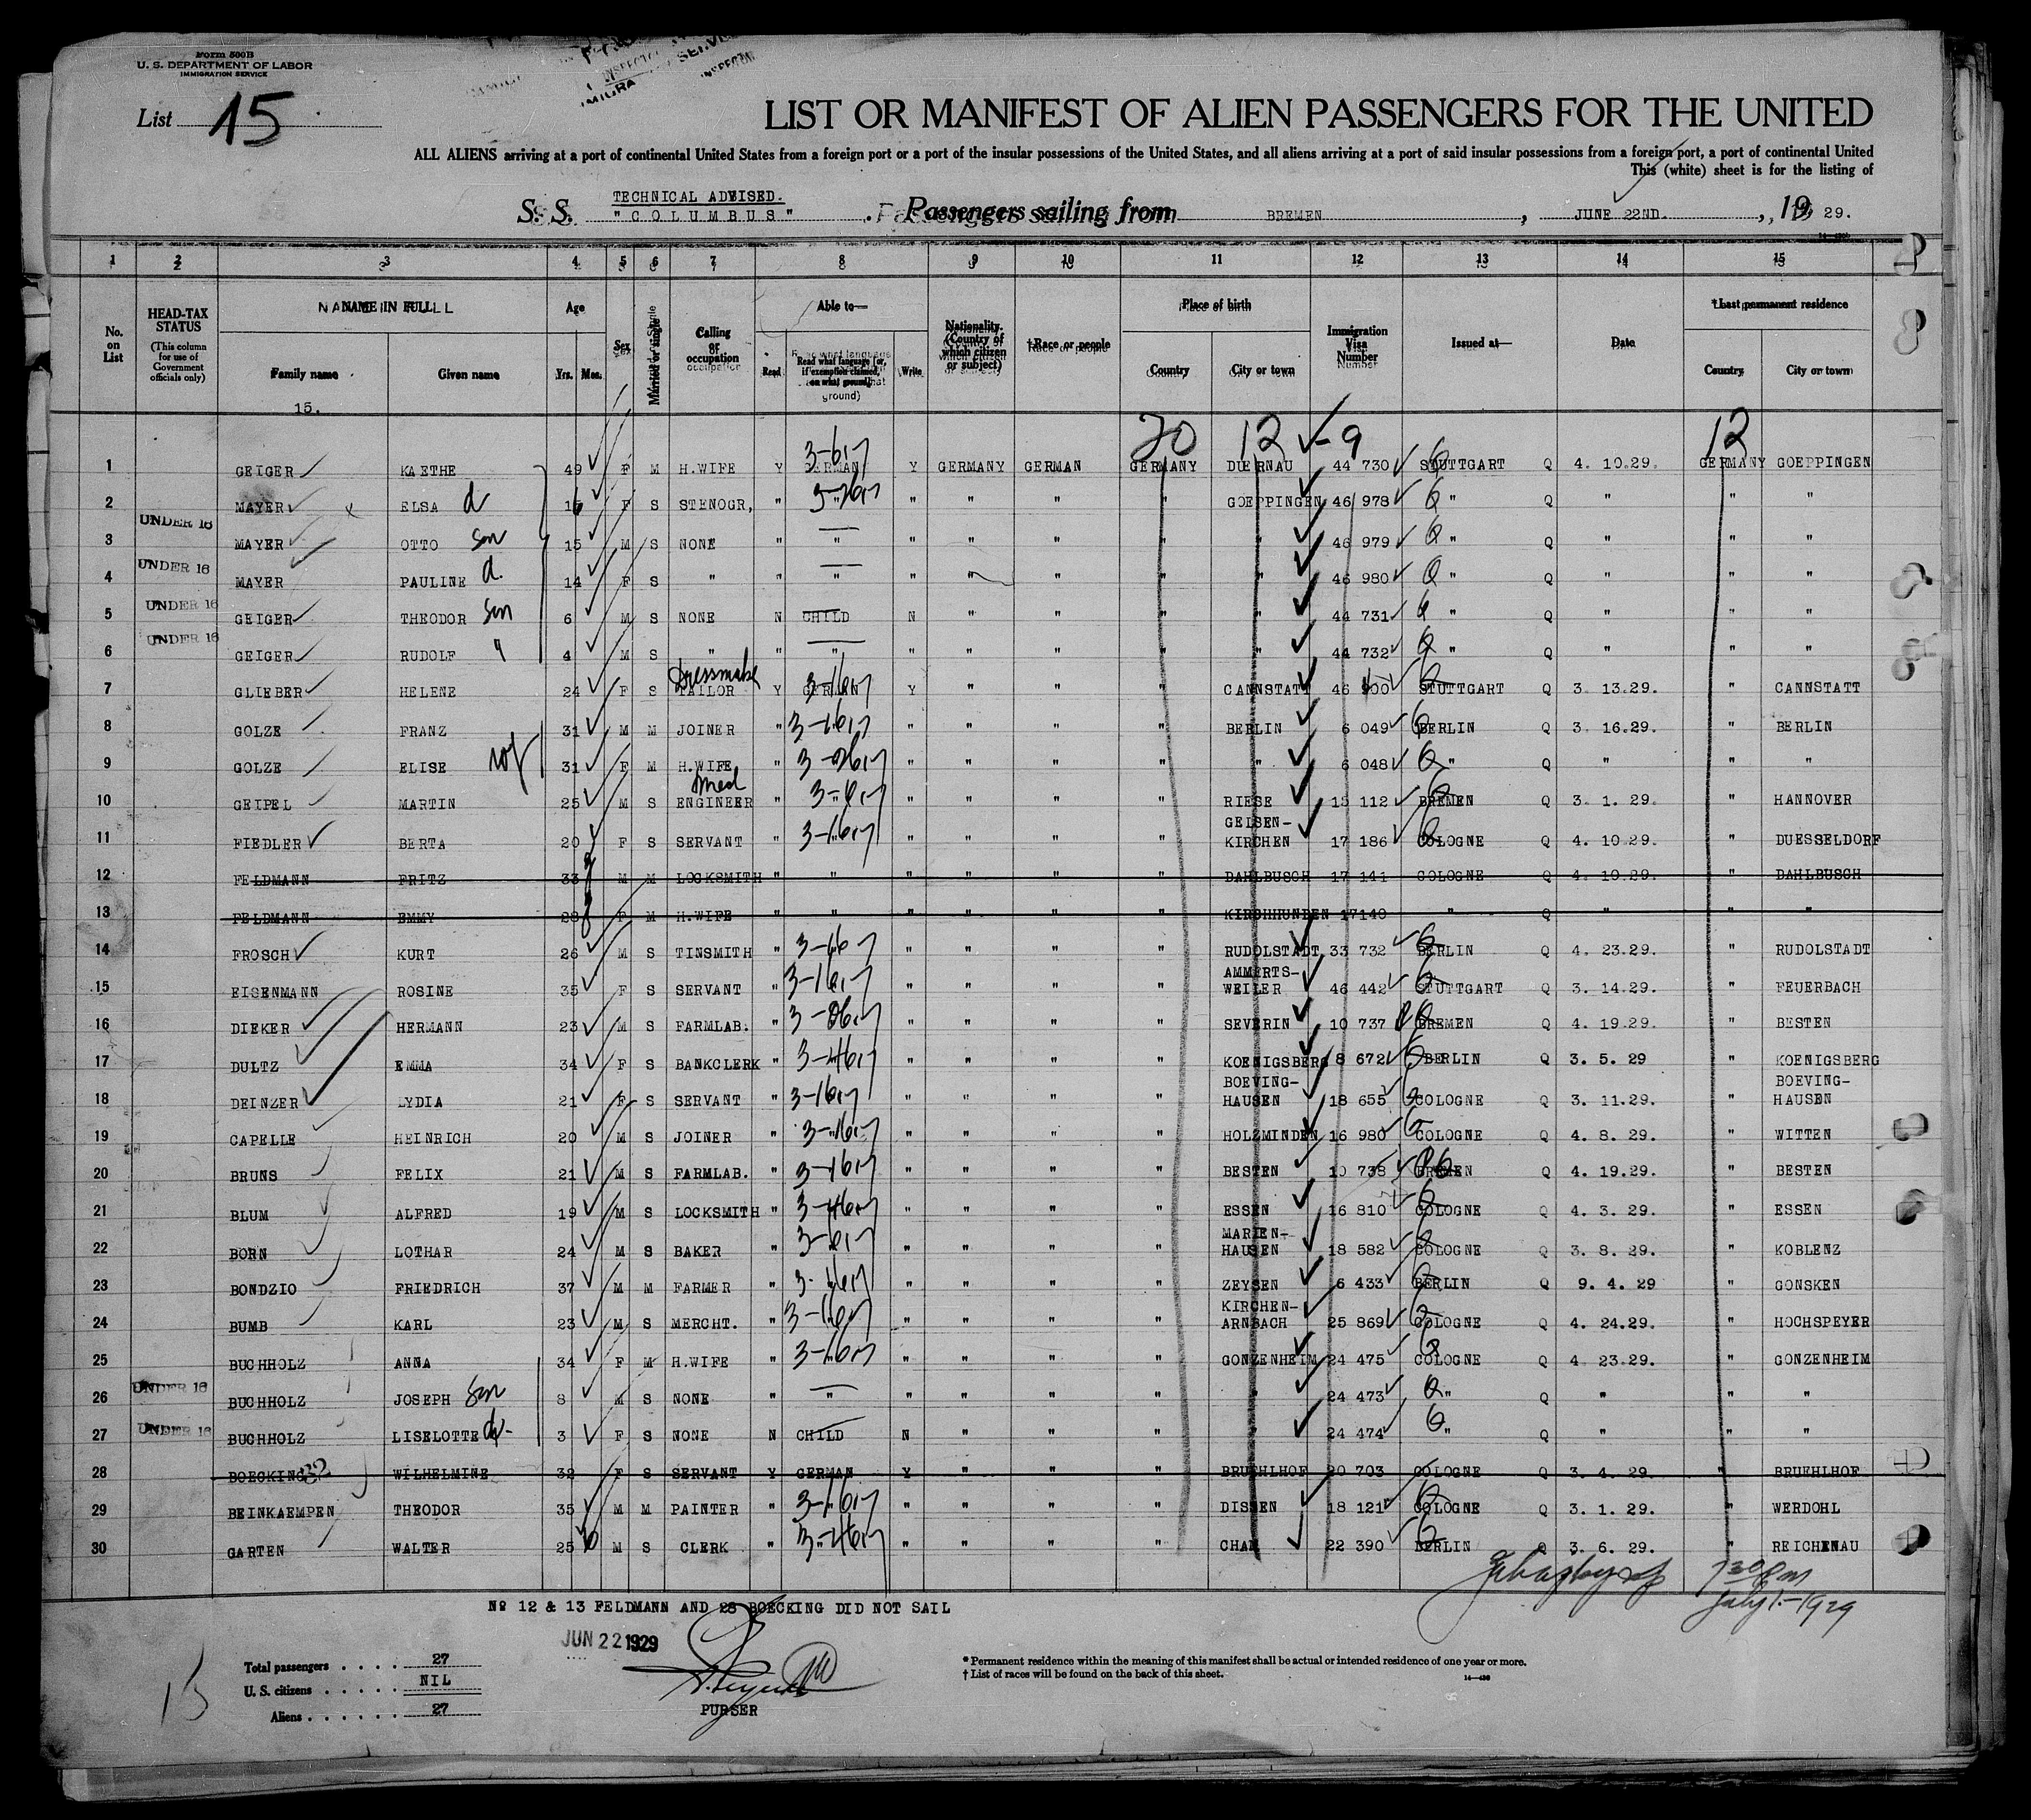 Form 500B
U. S. DEPARTMENT OF LABOR
IMMIGRATION SERVICE
List 15
LIST OR MANIFEST OF ALIEN PASSENGERS FOR THE UNITED
ALL ALIENS arriving at a port of continental United States from a foreign port or a port of the insular possessions of the United States, and all aliens arriving at a port of said insular possessions from a foreign port, a port of continental United
This (white) sheet is for the listing of
TECHNICAL ADVISED.
S. S. "COLUMBUS" . Passengers sailing from BREMEN , JUNE 22ND. , 19 29.
1 2 3 4 5 6 7 8 9 10 11 12 13 14 15
No. on List
HEAD-TAX STATUS (This column for use of Government officials only)
NAME IN FULL
Family name Given name
15.
Age
Yrs. Mos.
Sex
Married or single
Calling or occupation
Able to—
Read Read what language (or, if exemption claimed, on what ground) Write
Nationality. (Country of which citizen or subject)
†Race or people
Place of birth
Country City or town
Immigration Visa Number
Issued at—
Date
*Last permanent residence
Country City or town
20 12 - 9 12
1 GEIGER KAETHE 49 F M H.WIFE Y GERMAN Y GERMANY GERMAN GERMANY DUERNAU 44 730 STUTTGART Q 4. 10.29. GERMANY GOEPPINGEN
2 MAYER x ELSA d 16 F S STENOGR, " " " " " " GOEPPINGEN 46 978 " Q " " "
3 UNDER 16 MAYER OTTO son 15 M S NONE " " " " " " " 46 979 " Q " " "
4 UNDER 16 MAYER PAULINE d. 14 F S " " " " " " " " 46 980 " Q " " "
5 UNDER 16 GEIGER THEODOR son 6 M S NONE N CHILD N " " " " 44 731 " Q " " "
6 UNDER 16 GEIGER RUDOLF " 4 M S " " " " " " " " 44 732 " Q " " "
7 GLIEBER HELENE 24 F S TAILOR Y GERMAN Y " " " CANNSTATT 46 STUTTGART Q 3. 13.29. " CANNSTATT
8 GOLZE FRANZ 31 M M JOINER " " " " " BERLIN 6 049 BERLIN Q 3. 16.29. " BERLIN
9 GOLZE ELISE wf 31 F M H.WIFE " " " " " " 6 048 " Q " " "
10 GEIPEL MARTIN 25 M S ENGINEER " " " " " " RIESE 15 112 BREMEN Q 3. 1. 29. " HANNOVER
11 FIEDLER BERTA 20 F S SERVANT " " " " " " GELSEN-KIRCHEN 17 186 COLOGNE Q 4. 10.29. " DUESSELDORF
12 FELDMANN FRITZ 33 M M LOCKSMITH " " " " " " DAHLBUSCH 17 141 COLOGNE Q 4. 10.29. " DAHLBUSCH
13 FELDMANN EMMY 28 F M H.WIFE " " " " " " KIRCHHUNDEN 17140 " Q " " "
14 FROSCH KURT 26 M S TINSMITH " " " " " " RUDOLSTADT 33 732 BERLIN Q 4. 23.29. " RUDOLSTADT
15 EISENMANN ROSINE 35 F S SERVANT " " " " " " AMMERTS-WEILER 46 442 STUTTGART Q 3. 14.29. " FEUERBACH
16 DIEKER HERMANN 23 M S FARMLAB. " " " " " SEVERIN 10 737 BREMEN Q 4. 19.29. " BESTEN
17 DULTZ EMMA 34 F S BANKCLERK " " " " " KOENIGSBERG 8 672 BERLIN Q 3. 5. 29 " KOENIGSBERG
18 DEINZER LYDIA 21 F S SERVANT " " " " " BOEVING-HAUSEN 18 655 COLOGNE Q 3. 11.29. " BOEVING-HAUSEN
19 CAPELLE HEINRICH 20 M S JOINER " " " " " " HOLZMINDEN 16 980 COLOGNE Q 4. 8. 29. " WITTEN
20 BRUNS FELIX 21 M S FARMLAB. " " " " " BESTEN 10 738 BREMEN Q 4. 19.29. " BESTEN
21 BLUM ALFRED 19 M S LOCKSMITH " " " " " ESSEN 16 810 COLOGNE Q 4. 3. 29. " ESSEN
22 BORN LOTHAR 24 M S BAKER " " " " " MARIEN-HAUSEN 18 582 COLOGNE Q 3. 8. 29. " KOBLENZ
23 BONDZIO FRIEDRICH 37 M M FARMER " " " " " " ZEYSEN 6 433 BERLIN Q 9. 4. 29 " GONSKEN
24 BUMB KARL 23 M S MERCHT. " " " " " " KIRCHEN-ARNBACH 25 869 COLOGNE Q 4. 24.29. " HOCHSPEYER
25 BUCHHOLZ ANNA 34 F M H.WIFE " " " " " " GONZENHEIM 24 475 COLOGNE Q 4 23.29. " GONZENHEIM
26 UNDER 16 BUCHHOLZ JOSEPH son 8 M S NONE " " " " " " " 24 473 " Q " " "
27 UNDER 16 BUCHHOLZ LISELOTTE 3 F S NONE N CHILD N " " " " 24 474 " Q " " "
28 BOECKING 32 WILHELMINE 32 F S SERVANT Y GERMAN Y " " " BRUEHLHOF 20 703 COLOGNE Q 3. 4. 29. " BRUEHLHOF
29 BEINKAEMPEN THEODOR 35 M M PAINTER " " " " " " DISSEN 18 121 COLOGNE Q 3. 1. 29. " WERDOHL
30 GARTEN WALTER 25 M S CLERK " " " " " " CHAM 22 390 BERLIN Q 3. 6. 29. " REICHENAU
730 Pm
July 1-1929
No 12 & 13 FELDMANN AND 28 BOECKING DID NOT SAIL
JUN 22 1929
PURSER
15
Total passengers . . . . 27
U. S. citizens . . . . . NIL
Aliens . . . . . . 27
* Permanent residence within the meaning of this manifest shall be actual or intended residence of one year or more.
† List of races will be found on the back of this sheet.